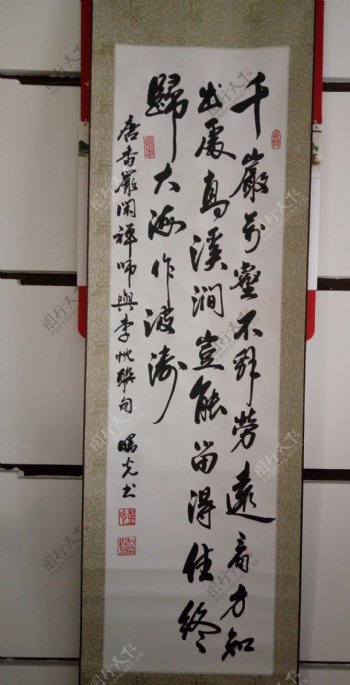 千巖万壑不辞勞遠看方知
出處高溪澗豈能留得住終
歸大海作波濤
唐香嚴閑禪師與李忱聯句 光书